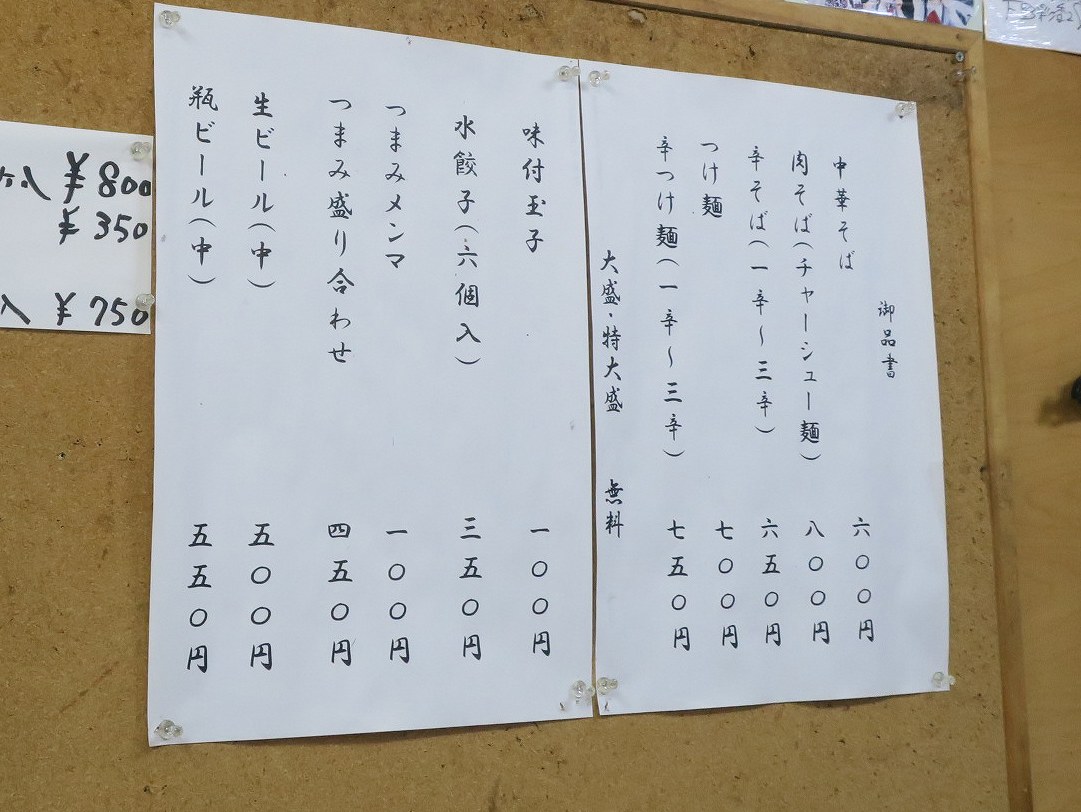 御品書
中華そば 六〇〇円
肉そば(チャーシュー麺) 八〇〇円
辛そば(一辛～三辛) 六五〇円
つけ麺 七〇〇円
辛つけ麺(一辛～三辛) 七五〇円
大盛・特大盛 無料
味付玉子 一〇〇円
水餃子(六個入) 三五〇円
つまみメンマ 一〇〇円
つまみ盛り合わせ 四五〇円
生ビール(中) 五〇〇円
瓶ビール(中) 五五〇円
¥800
¥350
入 ¥750